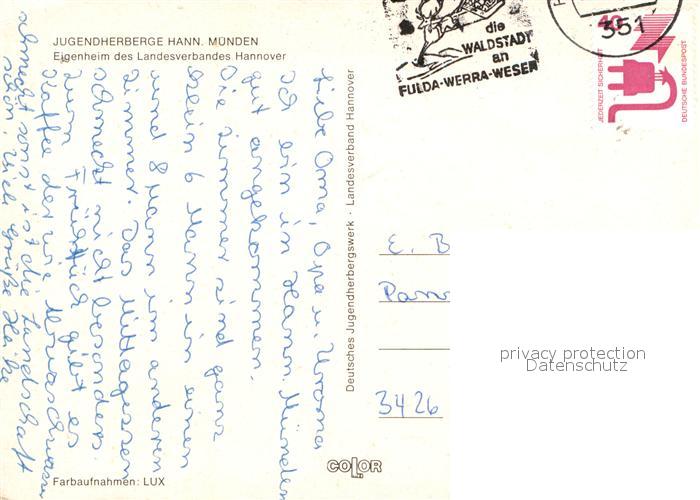 JUGENDHERBERGE HANN. MÜNDEN
Eigenheim des Landesverbandes Hannover
Liebe Oma, Opa u. Uroma
Ich bin in Hann. Münden
gut angekommen.
Die Zimmer sind ganz
klein 6 Mann in einen
und 8 Mann im anderen
Zimmer. Das Mittagessen
schmeckt nicht besonders.
Zum Frühstück gibt es
Kaffee der wie
schmeckt sonst ist die Landschaft
schön. Viele Grüße Heike
Farbaufnahmen: LUX
Deutsches Jugendherbergswerk · Landesverband Hannover
COLOR
die
WALDSTADT
an
FULDA-WERRA-WESER
351
40
JEDERZEIT SICHERHEIT
DEUTSCHE BUNDESPOST
E. B
3426
privacy protection
Datenschutz